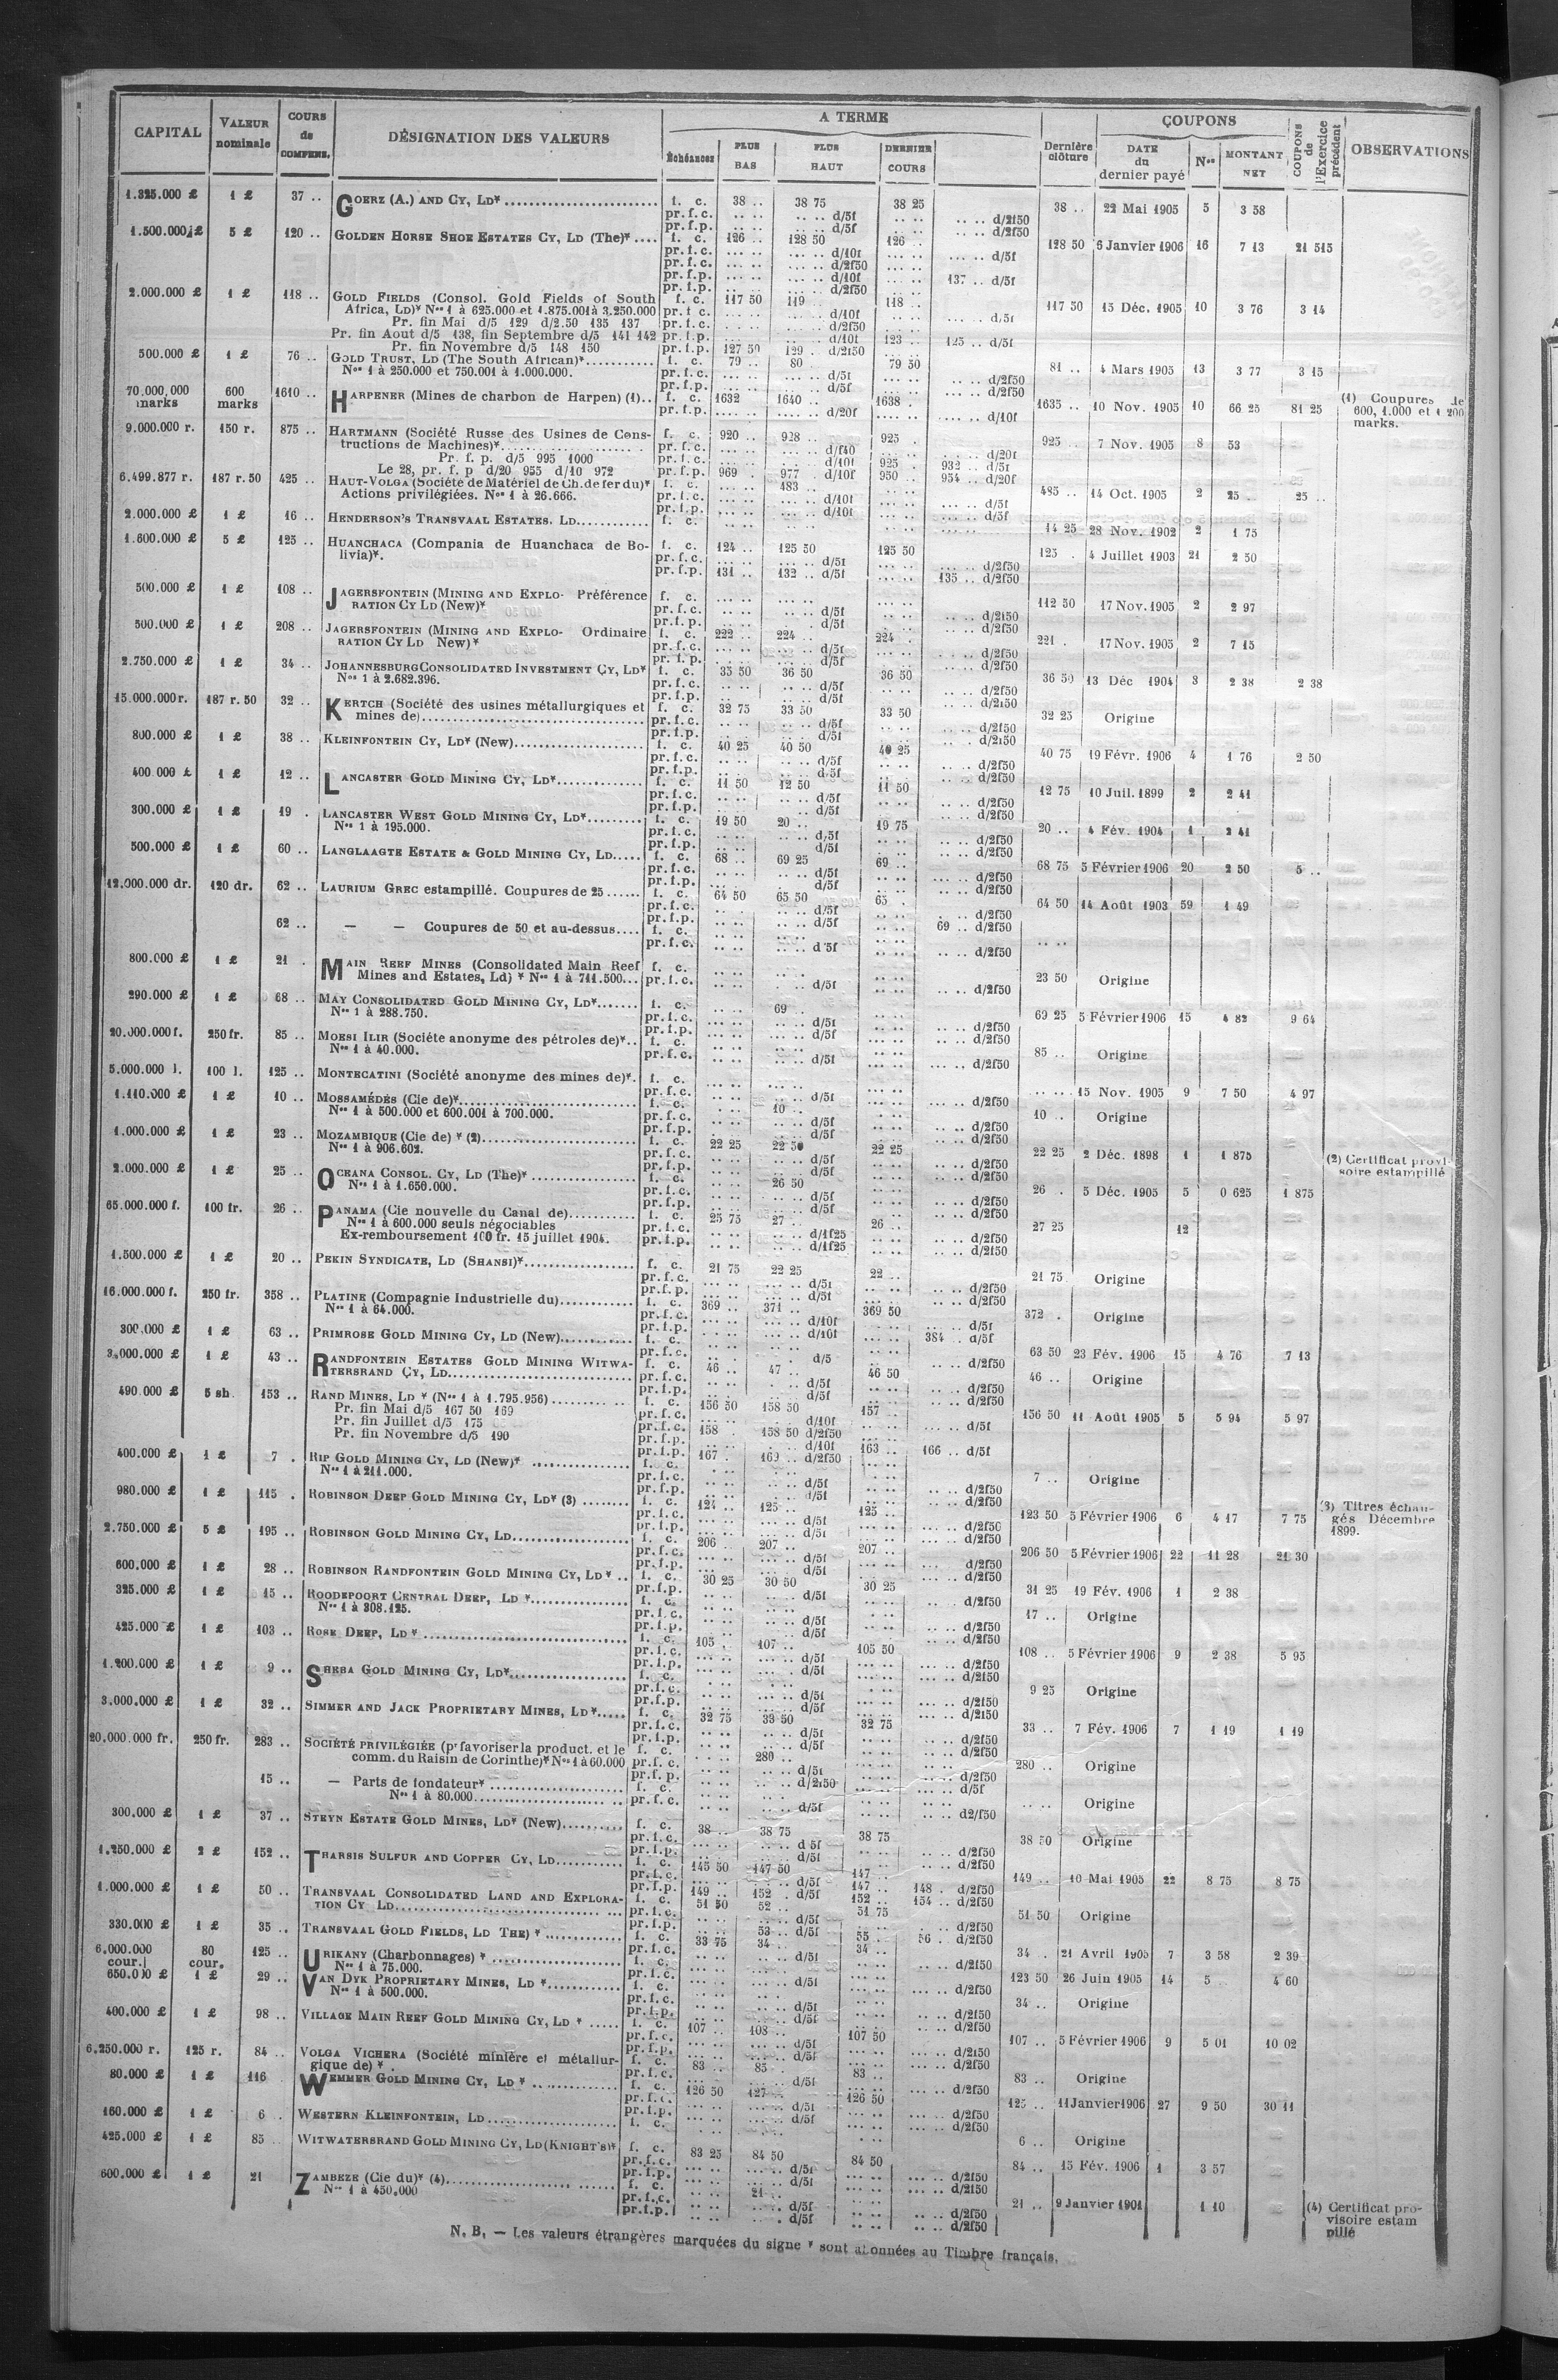 CAPITAL | VALEUR nominale | COURS de COMPENS. | DÉSIGNATION DES VALEURS | A TERME | Échéances | PLUS BAS | PLUS HAUT | DERNIER COURS | Dernière clôture | COUPONS | DATE du dernier payé | Nos | MONTANT NET | COUPONS de l'Exercice précédent | OBSERVATIONS
1.325.000 £ | 1 £ | 37 .. | GOERZ (A.) AND CY, LD* | f. c. | 38 .. | 38 75 | 38 25 | 38 .. | 22 Mai 1905 | 5 | 3 58
pr. f. c. d/5f d/2f50
pr. f. p. d/5f d/2f50
1.500.000 £ | 5 £ | 120 .. | GOLDEN HORSE SHOE ESTATES CY, LD (The)* | f. c. | 126 .. | 128 50 | 126 .. | 128 50 | 6 Janvier 1906 | 16 | 7 13 | 21 515
pr. f. c. d/10f d/5f
pr. f. c. d/2f50
pr. f. p. d/10f 137 .. d/5f
pr. f. p. d/2f50
2.000.000 £ | 1 £ | 118 .. | GOLD FIELDS (Consol. Gold Fields of South | f. c. | 117 50 | 119 .. | 118 .. | 117 50 | 15 Déc. 1905 | 10 | 3 76 | 3 14
Africa, LD)* Nos 1 à 625.000 et 1.875.001 à 3.250.000 pr. f. c. d/10f d/5f
Pr. fin Mai d/5 129 d/2.50 135 137 pr. f. c. d/2f50
Pr. fin Aout d/5 138, fin Septembre d/5 141 142 pr. f. p. d/10f 123 .. 125 .. d/5f
Pr. fin Novembre d/5 148 150 pr. f. p. 127 50 129 . d/2f50
500.000 £ | 1 £ | 76 .. | GOLD TRUST, LD (The South African)* | f. c. | 79 .. | 80 .. | 79 50 | 81 .. | 4 Mars 1905 | 13 | 3 77 | 3 15
Nos 1 à 250.000 et 750.001 à 1.000.000. pr. f. c. d/5f d/2f50
pr. f. p. d/5f d/2f50
70.000.000 marks | 600 marks | 1610 .. | HARPENER (Mines de charbon de Harpen) (1) | f. c. | 1632 | 1640 .. | 1638 .. | 1635 .. | 10 Nov. 1905 | 10 | 66 25 | 81 25 | (1) Coupures de 600, 1.000 et 1 200 marks.
pr. f. p. d/20f d/10f
9.000.000 r. | 150 r. | 875 .. | HARTMANN (Société Russe des Usines de Cons- | f. c. | 920 .. | 928 .. | 925 .. | 925 .. | 7 Nov. 1905 | 8 | 53
tructions de Machines)* pr. f. c. d/f40 d/20f
Pr. f. p. d/5 995 1000 pr. f. c. d/10f 925 . 932 .. d/5f
Le 28, pr. f. p d/20 955 d/10 972 pr. f. p. 969 . 977 . d/10f 950 .. 954 .. d/20f
6.499.877 r. | 187 r. 50 | 425 .. | HAUT-VOLGA (Société de Matériel de Ch. de fer du)* | f. c. | 483 .. | 485 .. | 14 Oct. 1905 | 2 | 25 .. | 25 ..
Actions privilégiées. Nos 1 à 26.666. pr. f. c. d/10f d/5f
pr. f. p. d/10f d/5f
2.000.000 £ | 1 £ | 16 .. | HENDERSON'S TRANSVAAL ESTATES. LD | f. c. | 14 25 | 28 Nov. 1902 | 2 | 1 75
1.600.000 £ | 5 £ | 125 .. | HUANCHACA (Compania de Huanchaca de Bo- | f. c. | 124 .. | 125 50 | 125 50 | 125 . | 4 Juillet 1903 | 21 | 2 50
livia)*. pr. f. c. d/5f d/2f50
pr. f. p. 131 .. 132 .. d/5f 135 .. d/2f50
500.000 £ | 1 £ | 108 .. | JAGERSFONTEIN (MINING AND EXPLO- Préférence | f. c. | 112 50 | 17 Nov. 1905 | 2 | 2 97
RATION CY LD (New)* pr. f. c. d/5f d/2f50
pr. f. p. d/5f d/2f50
500.000 £ | 1 £ | 208 .. | JAGERSFONTEIN (MINING AND EXPLO- Ordinaire | f. c. | 222 .. | 224 .. | 224 . | 221 . | 17 Nov. 1905 | 2 | 7 15
RATION CY LD New)* pr. f. c. d/5f d/2f50
pr. f. p. d/5f d/2f50
2.750.000 £ | 1 £ | 34 .. | JOHANNESBURG CONSOLIDATED INVESTMENT CY, LD* | f. c. | 35 50 | 36 50 | 36 50 | 36 50 | 13 Déc 1904 | 3 | 2 38 | 2 38
Nos 1 à 2.682.396. pr. f. c. d/5f d/2f50
pr. f. p. d/5f d/2f50
15.000.000 r. | 187 r. 50 | 32 .. | KERTCH (Société des usines métallurgiques et | f. c. | 32 75 | 33 50 | 33 50 | 32 25 | Origine
mines de) pr. f. c. d/5f d/2f50
pr. f. p. d/5f d/2f50
800.000 £ | 1 £ | 38 .. | KLEINFONTEIN CY, LD* (New) | f. c. | 40 25 | 40 50 | 40 25 | 40 75 | 19 Févr. 1906 | 4 | 1 76 | 2 50
pr. f. c. d/5f d/2f50
pr. f. p. d/5f d/2f50
400.000 £ | 1 £ | 12 .. | LANCASTER GOLD MINING CY, LD* | f. c. | 11 50 | 12 50 | 11 50 | 12 75 | 10 Juil. 1899 | 2 | 2 41
pr. f. c. d/5f d/2f50
pr. f. p. d/5f d/2f50
300.000 £ | 1 £ | 19 . | LANCASTER WEST GOLD MINING CY, LD* | f. c. | 19 50 | 20 .. | 19 75 | 20 .. | 4 Fév. 1904 | 1 | 2 41
Nos 1 à 195.000. pr. f. c. d/5f d/2f50
pr. f. p. d/5f d/2f50
500.000 £ | 1 £ | 60 .. | LANGLAAGTE ESTATE & GOLD MINING CY, LD | f. c. | 68 .. | 69 25 | 69 .. | 68 75 | 5 Février 1906 | 20 | 2 50 | 5 ..
pr. f. c. d/5f d/2f50
pr. f. p. d/5f d/2f50
12.000.000 dr. | 120 dr. | 62 .. | LAURIUM GREC estampillé. Coupures de 25 | f. c. | 64 50 | 65 50 | 65 . | 64 50 | 14 Août 1903 | 59 | 1 49
pr. f. c. d/5f d/2f50
pr. f. p. d/5f 69 .. d/2f50
62 .. | — — Coupures de 50 et au-dessus | f. c.
pr. f. c. d/5f d/2f50
800.000 £ | 1 £ | 21 . | MAIN REEF MINES (Consolidated Main Reef | f. c. | 23 50 | Origine
Mines and Estates, Ld) * Nos 1 à 741.500 pr. f. c. d/5f d/2f50
290.000 £ | 1 £ | 68 .. | MAY CONSOLIDATED GOLD MINING CY, LD* | f. c. | 69 .. | 69 25 | 5 Février 1906 | 15 | 4 82 | 9 64
Nos 1 à 288.750. pr. f. c. d/5f d/2f50
pr. f. p. d/5f d/2f50
20.000.000 f. | 250 fr. | 85 .. | MOESI ILIR (Société anonyme des pétroles de)* | f. c. | 85 .. | Origine
Nos 1 à 40.000. pr. f. c. d/5f d/2f50
5.000.000 l. | 100 l. | 125 .. | MONTECATINI (Société anonyme des mines de)*. | f. c. | 15 Nov. 1905 | 9 | 7 50 | 4 97
pr. f. c. d/5f d/2f50
1.110.000 £ | 1 £ | 10 .. | MOSSAMÉDÈS (Cie de)* | f. c. | 10 .. | 10 .. | Origine
Nos 1 à 500.000 et 600.001 à 700.000. pr. f. c. d/5f d/2f50
pr. f. p. d/5f d/2f50
1.000.000 £ | 1 £ | 23 .. | MOZAMBIQUE (Cie de) * (2) | f. c. | 22 25 | 22 50 | 22 25 | 22 25 | 2 Déc. 1898 | 1 | 1 875 | (2) Certificat provisoire estampillé
Nos 1 à 906.602. pr. f. c. d/5f d/2f50
pr. f. p. d/5f d/2f50
2.000.000 £ | 1 £ | 25 .. | OCEANA CONSOL. CY, LD (The)* | f. c. | 26 50 | 26 .. | 5 Déc. 1905 | 5 | 0 625 | 1 875
Nos 1 à 1.650.000. pr. f. c. d/5f d/2f50
pr. f. p. d/5f d/2f50
65.000.000 f. | 100 fr. | 26 .. | PANAMA (Cie nouvelle du Canal de) | f. c. | 25 75 | 27 .. | 26 .. | 27 25 | 12
Nos 1 à 600.000 seuls négociables pr. f. c. d/1f25 d/2f50
Ex-remboursement 100 fr. 15 juillet 1904. pr. f. p. d/1f25 d/2f50
1.500.000 £ | 1 £ | 20 .. | PEKIN SYNDICATE, LD (SHANSI)* | f. c. | 21 75 | 22 25 | 22 .. | 21 75 | Origine
pr. f. c. d/5f d/2f50
pr. f. p. d/5f d/2f50
16.000.000 f. | 250 fr. | 358 .. | PLATINE (Compagnie Industrielle du) | f. c. | 369 .. | 371 .. | 369 50 | 372 . | Origine
Nos 1 à 64.000. pr. f. c. d/10f d/5f
pr. f. p. d/10f 384 .. d/5f
300.000 £ | 1 £ | 63 .. | PRIMROSE GOLD MINING CY, LD (New) | f. c. | 63 50 | 23 Fév. 1906 | 15 | 4 76 | 7 13
pr. f. c. d/5 d/2f50
3.000.000 £ | 1 £ | 43 .. | RANDFONTEIN ESTATES GOLD MINING WITWA- | f. c. | 46 .. | 47 .. | 46 50 | 46 .. | Origine
TERSRAND CY, LD pr. f. c. d/5f d/2f50
pr. f. p. d/5f d/2f50
490.000 £ | 5 sh. | 153 .. | RAND MINES, LD * (Nos 1 à 1.795.956) | f. c. | 156 50 | 158 50 | 157 .. | 156 50 | 11 Août 1905 | 5 | 5 94 | 5 97
Pr. fin Mai d/5 167 50 169 pr. f. c. d/10f d/5f
Pr. fin Juillet d/5 175 pr. f. c. 158 . 158 50 d/2f50
Pr. fin Novembre d/5 190 pr. f. p. d/10f 163 .. 166 .. d/5f
pr. f. p. 167 . 169 .. d/2f50
400.000 £ | 1 £ | 7 . | RIP GOLD MINING CY, LD (New)* | f. c. | 7 .. | Origine
Nos 1 à 211.000. pr. f. c. d/5f d/2f50
pr. f. p. d/5f d/2f50
980.000 £ | 1 £ | 115 . | ROBINSON DEEP GOLD MINING CY, LD* (3) | f. c. | 124 .. | 125 .. | 125 .. | 123 50 | 5 Février 1906 | 6 | 4 17 | 7 75 | (3) Titres échangés Décembre 1899.
pr. f. c. d/5f d/2f50
pr. f. p. d/5f d/2f50
2.750.000 £ | 5 £ | 195 .. | ROBINSON GOLD MINING CY, LD | f. c. | 206 .. | 207 .. | 207 .. | 206 50 | 5 Février 1906 | 22 | 11 28 | 21 30
pr. f. c. d/5f d/2f50
pr. f. p. d/5f d/2f50
600.000 £ | 1 £ | 28 .. | ROBINSON RANDFONTEIN GOLD MINING CY, LD * | f. c. | 30 25 | 30 50 | 30 25 | 31 25 | 19 Fév. 1906 | 1 | 2 38
pr. f. p. d/5f d/2f50
325.000 £ | 1 £ | 15 .. | ROODEPOORT CENTRAL DEEP, LD * | f. c. | 17 .. | Origine
Nos 1 à 308.125. pr. f. c. d/5f d/2f50
pr. f. p. d/5f d/2f50
425.000 £ | 1 £ | 103 .. | ROSE DEEP, LD * | f. c. | 105 . | 107 .. | 105 50 | 108 .. | 5 Février 1906 | 9 | 2 38 | 5 95
pr. f. c. d/5f d/2f50
pr. f. p. d/5f d/2f50
1.200.000 £ | 1 £ | 9 .. | SHEBA GOLD MINING CY, LD* | f. c. | 9 25 | Origine
pr. f. c. d/5f d/2f50
pr. f. p. d/5f d/2f50
3.000.000 £ | 1 £ | 32 .. | SIMMER AND JACK PROPRIETARY MINES, LD* | f. c. | 32 75 | 33 50 | 32 75 | 33 .. | 7 Fév. 1906 | 7 | 1 19 | 1 19
pr. f. c. d/5f d/2f50
pr. f. p. d/5f d/2f50
20.000.000 fr. | 250 fr. | 283 .. | SOCIÉTÉ PRIVILÉGIÉE (pr favoriser la product. et le | f. c. | 280 .. | 280 .. | Origine
comm. du Raisin de Corinthe)* Nos 1 à 60.000 pr. f. c. d/5f d/2f50
pr. f. p. d/2f50 d/5f
15 .. | — Parts de fondateur* | f. c. | Origine
Nos 1 à 80.000 pr. f. c. d/5f d2/f50
300.000 £ | 1 £ | 37 .. | STEYN ESTATE GOLD MINES, LD* (New) | f. c. | 38 .. | 38 75 | 38 75 | 38 50 | Origine
pr. f. c. d 5f d/2f50
pr. f. p. d/5f d/2f50
1.250.000 £ | 2 £ | 152 .. | THARSIS SULFUR AND COPPER CY, LD | f. c. | 145 50 | 147 50 | 147 .. | 149 .. | 10 Mai 1905 | 22 | 8 75 | 8 75
pr. f. c. d/5f 147 .. 148 . d/2f50
pr. f. p. 149 .. 152 . d/5f 152 .. 154 .. d/2f50
1.000.000 £ | 1 £ | 50 .. | TRANSVAAL CONSOLIDATED LAND AND EXPLORA- | f. c. | 51 50 | 52 .. | 51 75 | 51 50 | Origine
TION CY LD pr. f. c. d/5f d/2f50
pr. f. p. 53 .. d/5f 55 .. 56 .. d/2f50
330.000 £ | 1 £ | 35 .. | TRANSVAAL GOLD FIELDS, LD THE) * | f. c. | 33 75 | 34 .. | 34 .. | 34 . | 21 Avril 1905 | 7 | 3 58 | 2 39
pr. f. c. d/5f d/2f50
6.000.000 cour. | 80 cour. | 125 .. | URIKANY (Charbonnages) * | f. c. | 123 50 | 26 Juin 1905 | 14 | 5 . | 4 60
Nos 1 à 75.000. pr. f. c. d/5f d/2f50
650.000 £ | 1 £ | 29 .. | VAN DYK PROPRIETARY MINES, LD * | f. c. | 34 .. | Origine
Nos 1 à 500.000. pr. f. c. d/5f d/2f50
pr. f. p. d/5f d/2f50
400.000 £ | 1 £ | 98 .. | VILLAGE MAIN REEF GOLD MINING CY, LD * | f. c. | 107 .. | 108 .. | 107 50 | 107 .. | 5 Février 1906 | 9 | 5 01 | 10 02
pr. f. c. d/5f d/2f50
pr. f. p. d/5f d/2f50
6.250.000 r. | 125 r. | 84 .. | VOLGA VICHERA (Société minière et métallur- | f. c. | 83 .. | 85 .. | 83 .. | 83 .. | Origine
gique de) * . pr. f. c. d/5f d/2f50
80.000 £ | 1 £ | 116 | WEMMER GOLD MINING CY, LD * | f. c. | 126 50 | 127 .. | 126 50 | 125 .. | 11 Janvier 1906 | 27 | 9 50 | 30 11
pr. f. c. d/5f d/2f50
pr. f. p. d/5f d/2f50
160.000 £ | 1 £ | 6 . | WESTERN KLEINFONTEIN, LD | f. c. | 6 .. | Origine
425.000 £ | 1 £ | 85 | WITWATERSRAND GOLD MINING CY, LD (KNIGHT'S)* | f. c. | 83 25 | 84 50 | 84 50 | 84 .. | 15 Fév. 1906 | 1 | 3 57
pr. f. c. d/5f d/2f50
pr. f. p. d/5f d/2f50
600.000 £ | 1 £ | 21 | ZAMBEZE (Cie du)* (4) | f. c. | 21 .. | 21 .. | 9 Janvier 1901 | 1 10 | (4) Certificat provisoire estam pillé
Nos 1 à 450.000 pr. f. c. d/5f d/2f50
pr. f. p. d/5f d/2f50
N. B. — Les valeurs étrangères marquées du signe * sont abonnées au Timbre français.